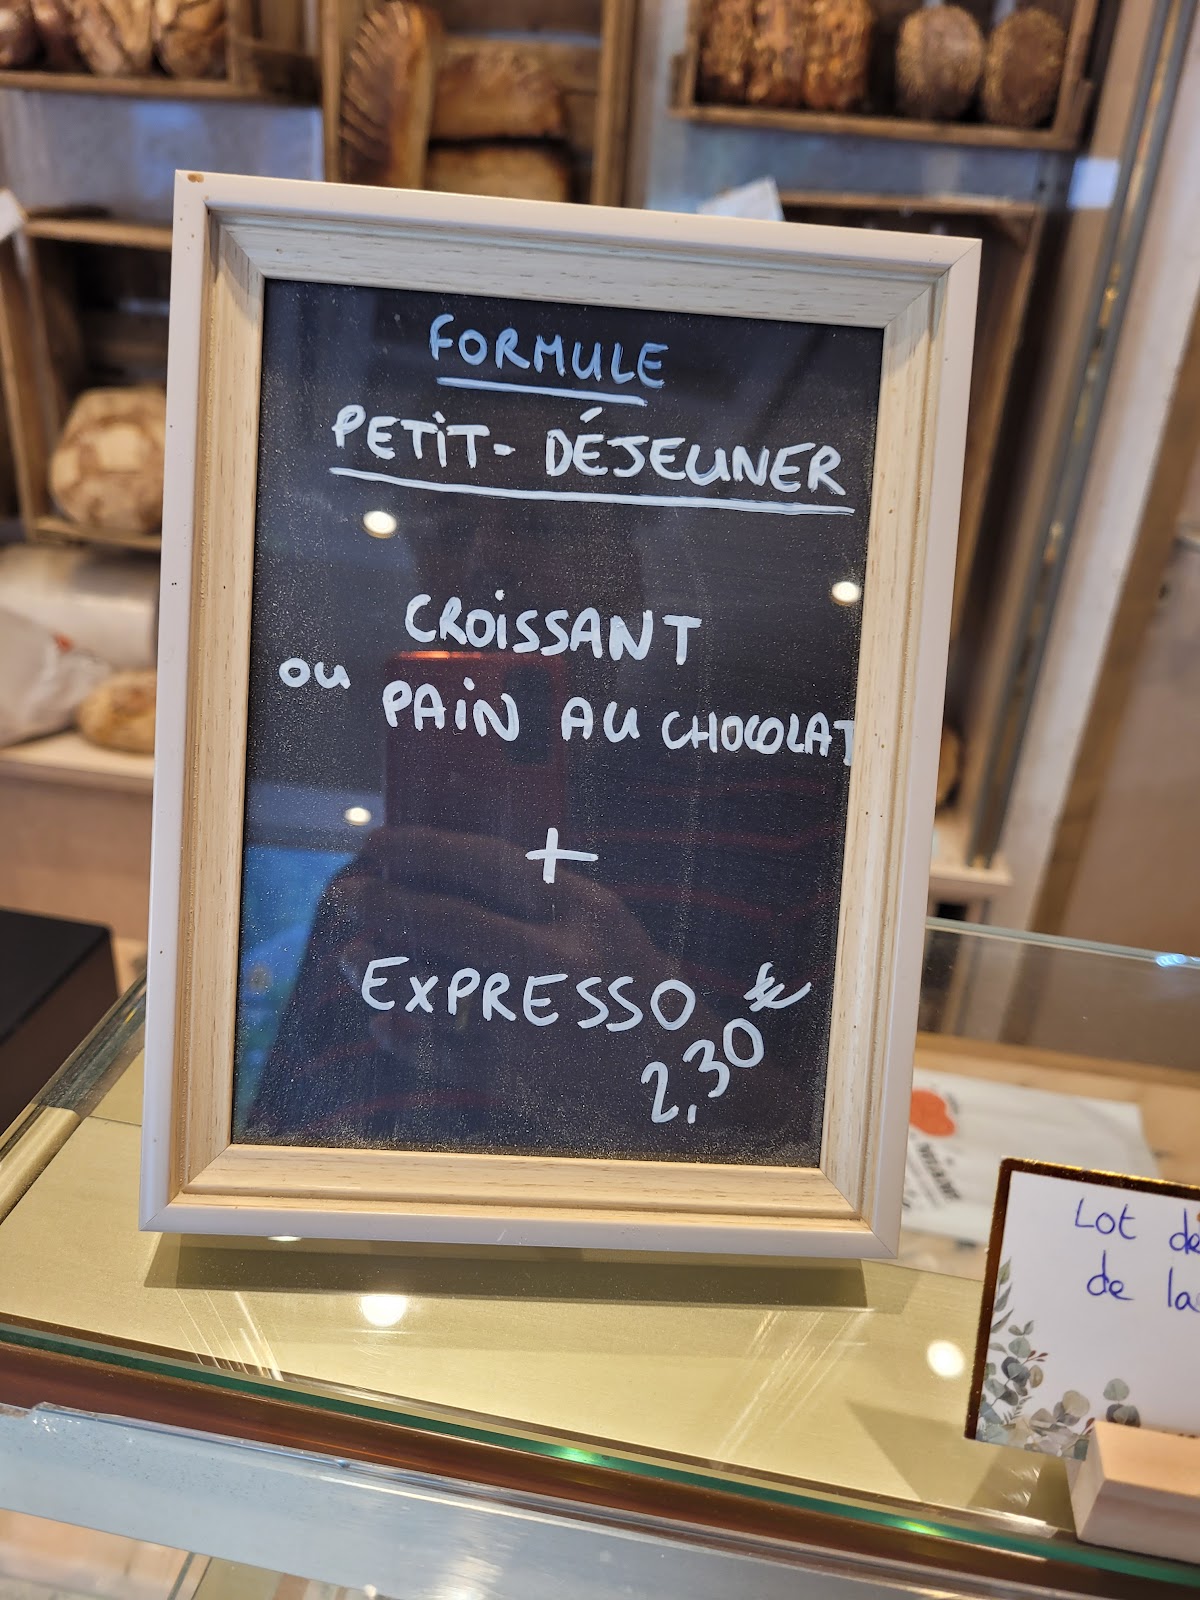 FORMULE
PETIT-DÉJEUNER
CROISSANT
ou PAIN AU CHOCOLAT
+
EXPRESSO
2,30€
Lot de
de la